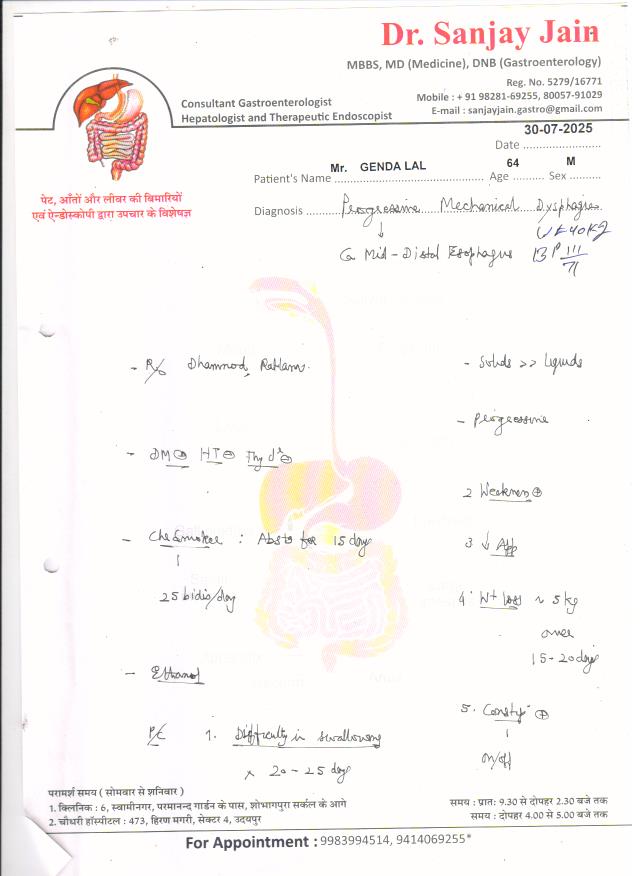 Dr. Sanjay Jain
MBBS, MD (Medicine), DNB (Gastroenterology)
Reg. No. 5279/16771
Mobile : + 91 98281-69255, 80057-91029
E-mail : sanjayjain.gastro@gmail.com
Consultant Gastroenterologist
Hepatologist and Therapeutic Endoscopist
पेट, आँतों और लीवर की बिमारियों
एवं ऐन्डोस्कोपी द्वारा उपचार के विशेषज्ञ
30-07-2025
Date
Mr. GENDA LAL 64 M
Patient's Name Age Sex
Diagnosis Progressive Mechanical Dysphagia
↓ Wt 40 Kg
Ca Mid-Distal Esophagus BP 111/71
- R/o Dhamnod, Ratlam.
- Solids >> liquids
- Progressive
- DM⊖ HT⊖ Thy dx⊖
2 Weakness ⊕
- Che Smoker : Absts for 15 days
3 ↓ App
25 bidis/day
4. Wt loss ~ 5 kg
over
15-20 days
- Ethanol
5. Constip ⊕
P/C 1. Difficulty in swallowing
on/off
x 20-25 days
परामर्श समय ( सोमवार से शनिवार )
1. क्लिनिक : 6, स्वामीनगर, परमानन्द गार्डन के पास, शोभागपुरा सर्कल के आगे
समय : प्रातः 9.30 से दोपहर 2.30 बजे तक
2. चौधरी हॉस्पीटल : 473, हिरण मगरी, सेक्टर 4, उदयपुर
समय : दोपहर 4.00 से 5.00 बजे तक
For Appointment : 9983994514, 9414069255*